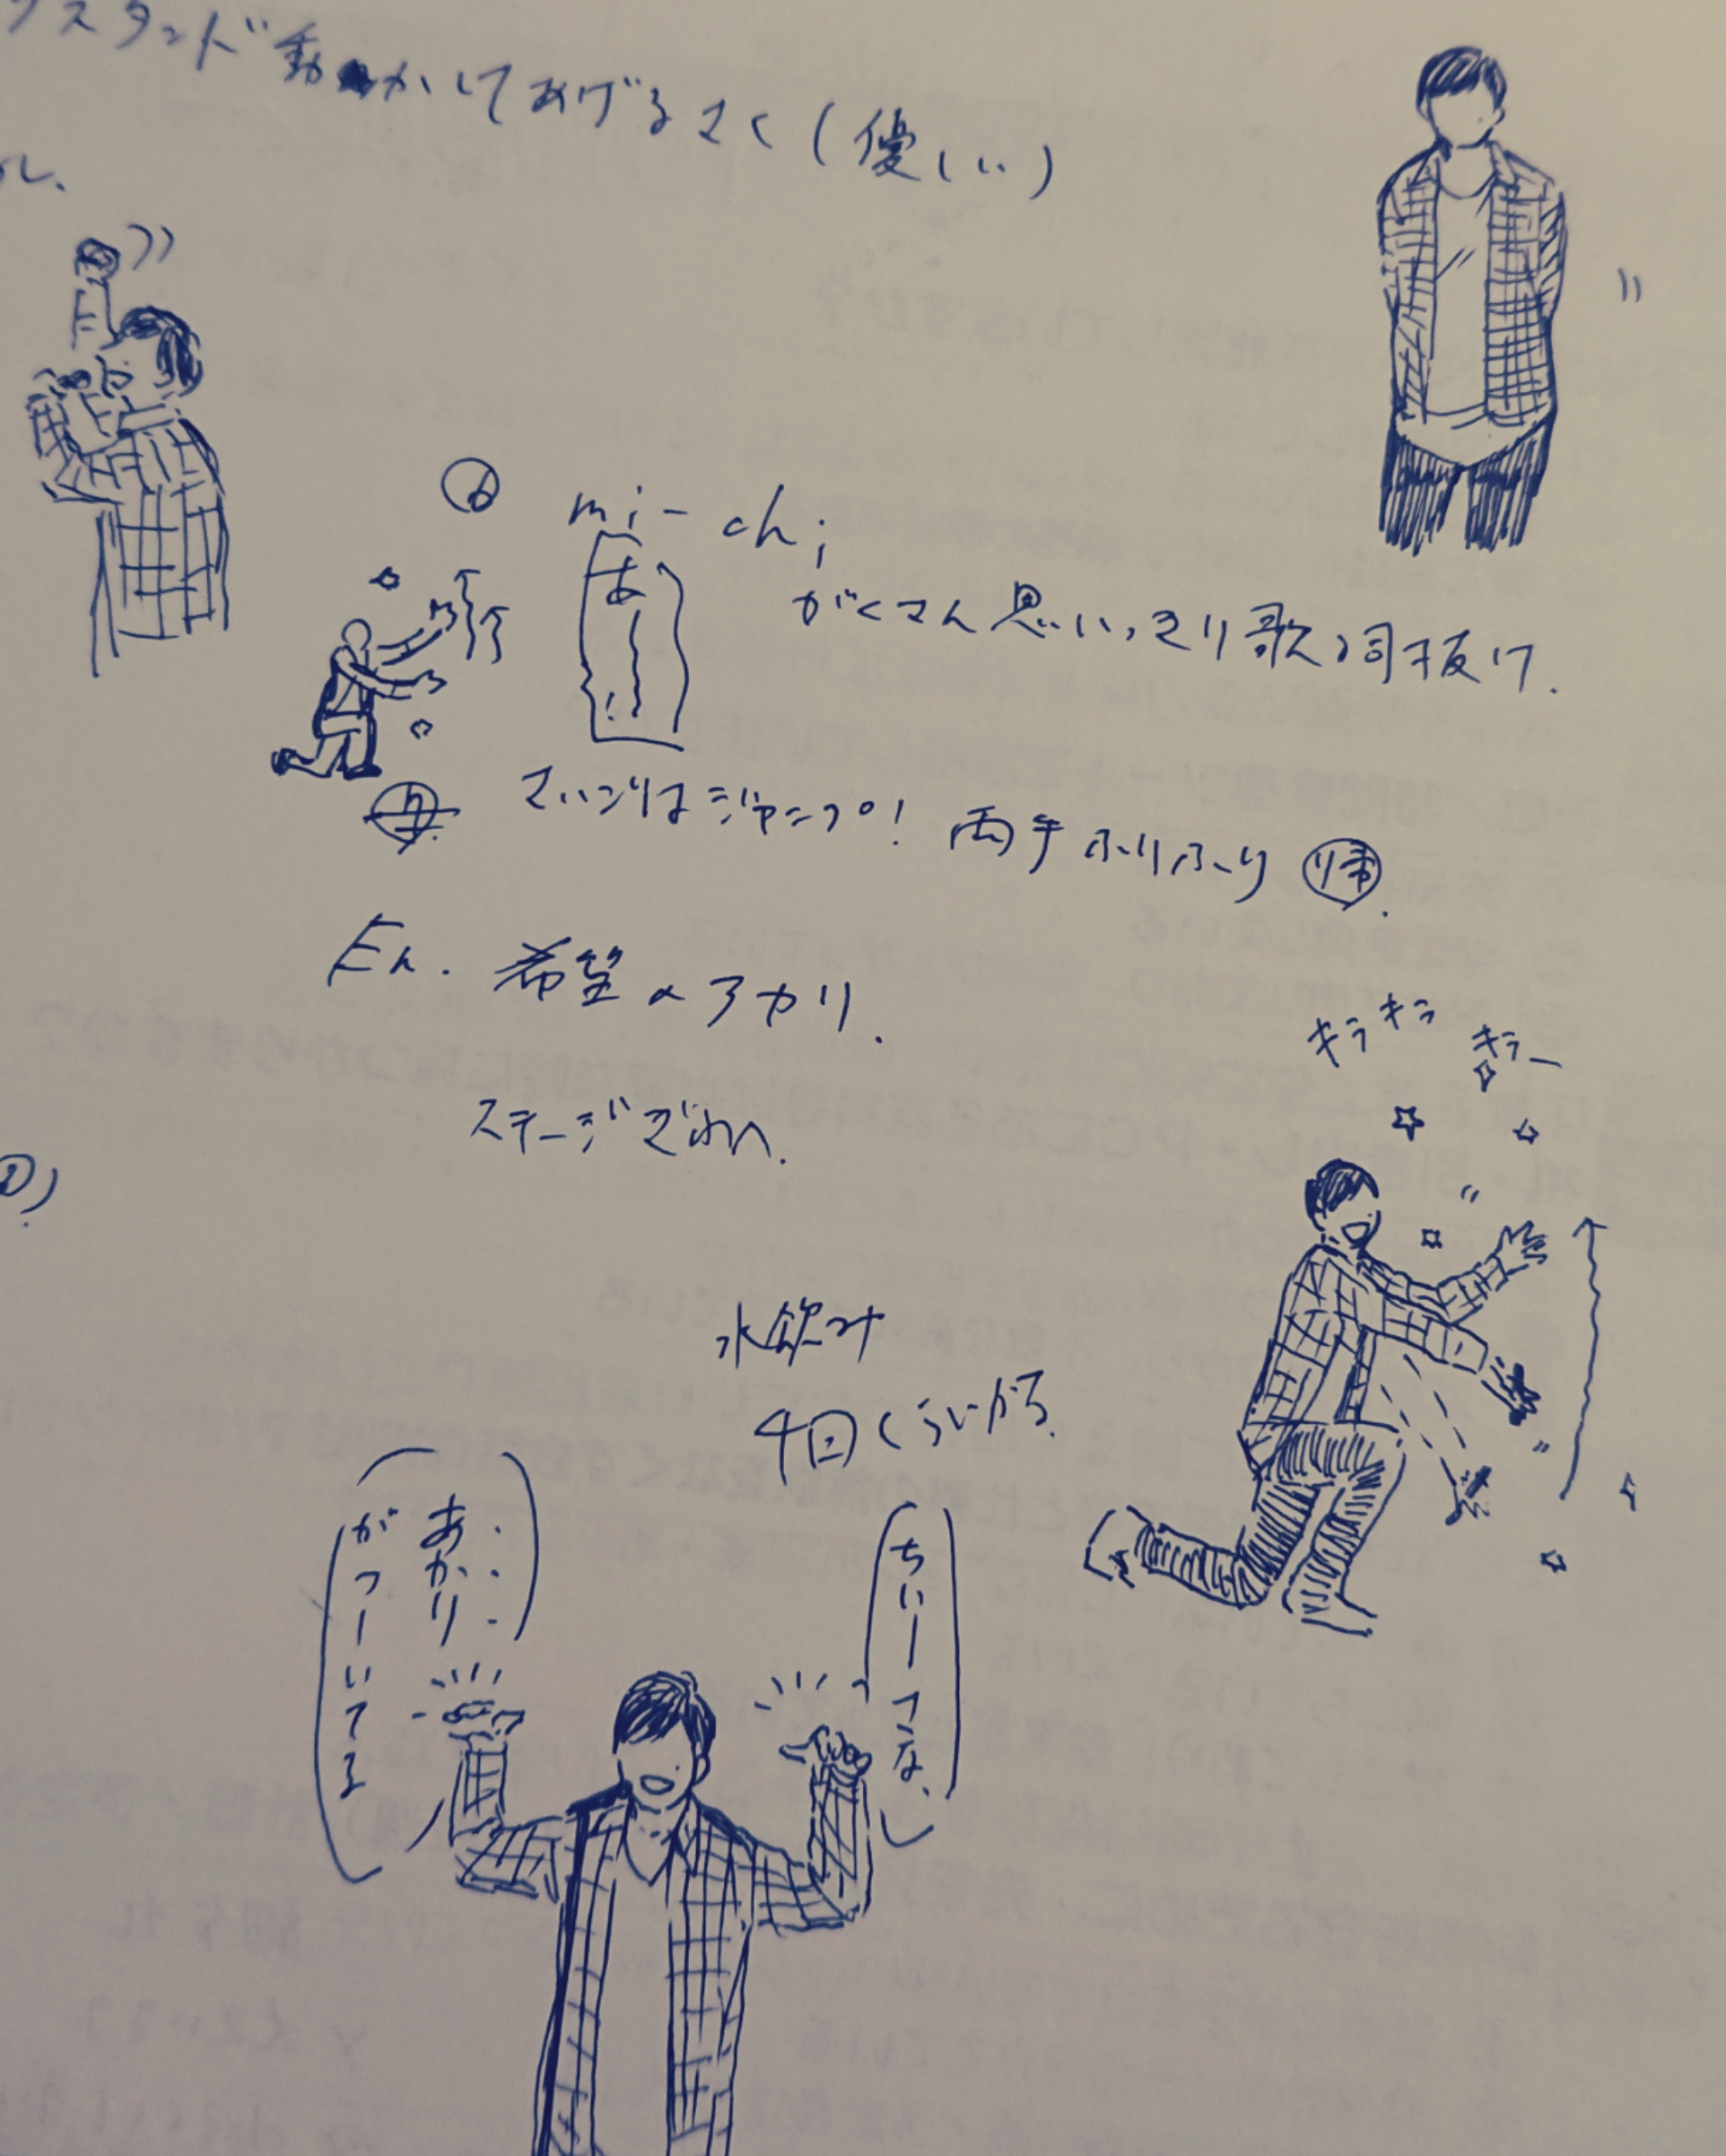 スタンド動かしてあげるさく(優しい)
ル、
⑥ mi-chi
がくさん思いっきり歌詞抜け.
は〜!
さいごはジャンプ! 両手ふりふり
En. 希望のアカリ.
ステージぎわへ.
キラキラ キラー
水飲み
4回くらいから.
ちぃーさな、
・・・あかり
がつーいてる